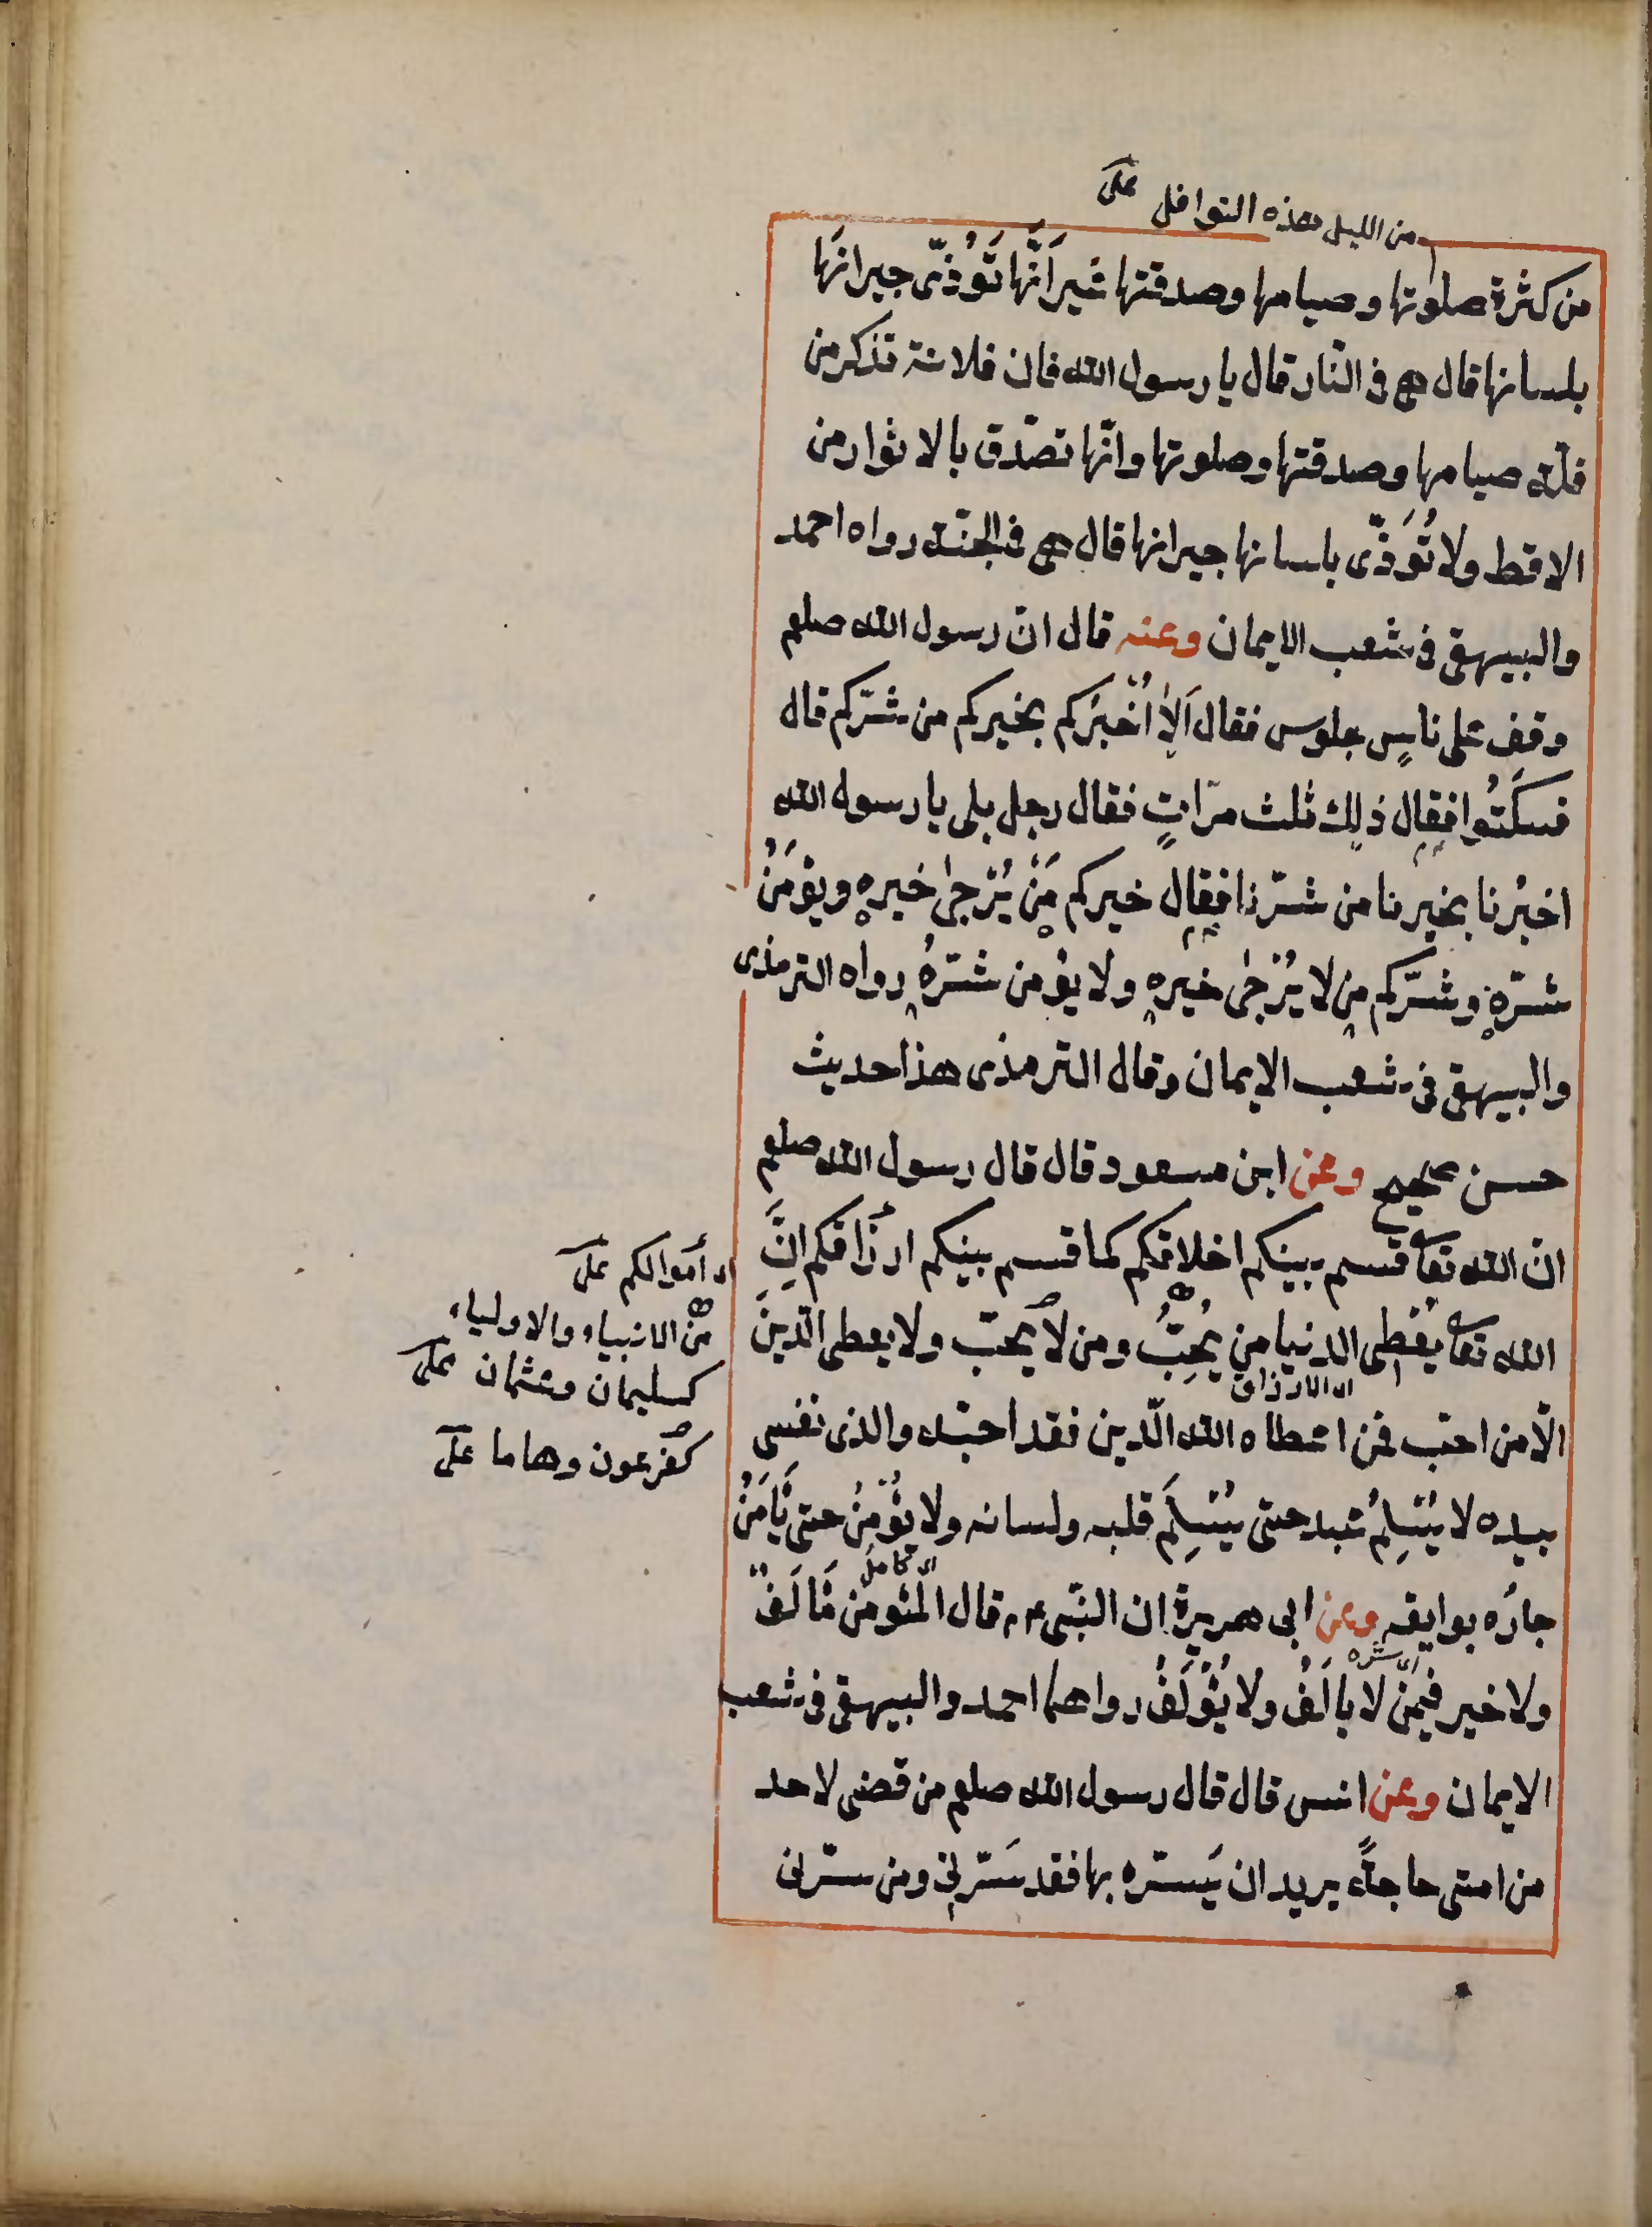 من الليل هذه النوافل على
من كثرة صلوتها وصيامها وصدقتها غير اَنَّها تَؤُذّى جيرانَها
بلسانها قال هى فى النّار قال يا رسول الله فان فلانة تذكر من
قلّة صيامها وصدقتها وصلوتها وانّها تصّدق بالاثوار من
الاقط ولا تُؤَذّى بلسانها جيرانها قال هى فى الجنّة رواه احمد
والبيهقى فى شعب الايمان وعنه قال انّ رسول الله صلعم
وقف على ناسٍ جلوس فقال اَلاٰ اُخْبِرُكم بخيركم من شرّكم قال
فسكَتُوا فقال ذلِك ثلث مرّاتٍ فقال رجل بلى يا رسول الله
اخبِرْنا بخيرنا من شرّنا فقال خيركم مَنْ يُرْجىٰ خيره ويؤمَنُ
شرّه وشرّكم من لا يُرْجٰى خيره ولا يؤمن شرّهُ رواه الترمذى
والبيهقى فى شعب الايمان وقال الترمذى هذا حديث
حسن صحيح وعن ابن مسعود قال قال رسول الله صلعم
انّ الله تعا قسم بينكم اخلاقكم كما قسم بينكم ارزَاقكم انَّ
اى أموالكم على
الله تعا يُعْطى الدنيا من يُحِبُّ ومن لا يحبّ ولا يعطى الدّينَ
من الانبياء والاولياء
كسليمان وعثمان على
اى الارزاق
الّا من احبّ فمن اعطاه الله الدّين فقد احبّه والذى نفسى
كفرعون وهاما على
بيده لا يُسْلِمُ عبد حتى يُسْلِمَ قلبه ولسانه ولا يُؤْمِنُ حتى يَأمَنُ
اى كامل
جارُه بوايقه وعن ابى هريرة ان النبّى عم قال المُؤمن مَألَفٌ
اى شره
ولا خير فيمَنْ لا يالَفُ ولا يُؤْلَفُ رواهما احمد والبيهقى فى شعب
الايمان وعن انس قال قال رسول الله صلعم من قضى لاحد
من امتى حاجةً يريد ان يَسرّه بها فقد سَرّنى ومن سرّنى